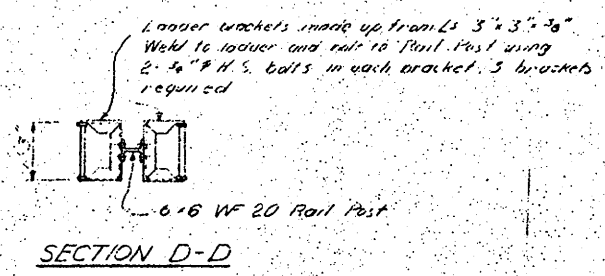 Ladder brackets made up from Ls 3" x 3" x 3/8"
Weld to ladder and bolt to Rail Post using
2- 3/4" φ H.S. bolts in each bracket. 3 brackets
required
6 x 6 WF 20 Rail Post
SECTION D-D